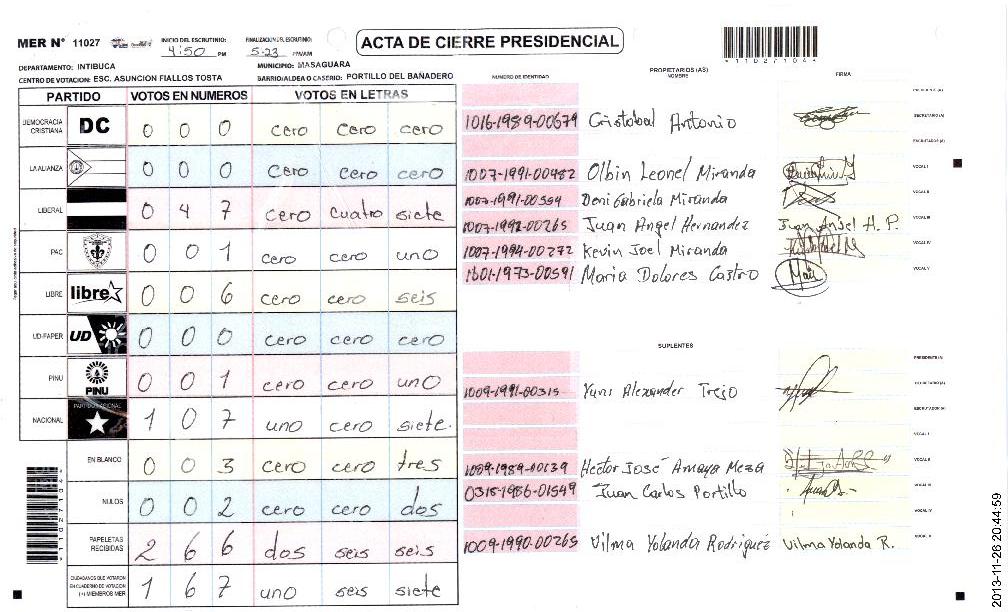 MER N° 11027
INICIO DEL ESCRUTINIO: 4:50 PM
FINALIZACION DEL ESCRUTINIO: 5-23 PM/AM
ACTA DE CIERRE PRESIDENCIAL
*110271044*
DEPARTAMENTO: INTIBUCA
MUNICIPIO: MASAGUARA
CENTRO DE VOTACION: ESC. ASUNCION FIALLOS TOSTA
BARRIO/ALDEA O CASERIO: PORTILLO DEL BAÑADERO
PARTIDO VOTOS EN NUMEROS VOTOS EN LETRAS
DEMOCRACIA CRISTIANA DC 0 0 0 cero cero cero
LA ALIANZA 0 0 0 cero cero cero
LIBERAL 0 4 7 cero cuatro siete
PAC 0 0 1 cero cero uno
LIBRE libre 0 0 6 cero cero seis
UD-FAPER UD 0 0 0 cero cero cero
PINU PINU 0 0 1 cero cero uno
NACIONAL PARTIDO NACIONAL 1 0 7 uno cero siete.
EN BLANCO 0 0 3 cero cero tres
NULOS 0 0 2 cero cero dos
PAPELETAS RECIBIDAS 2 6 6 dos seis seis
CIUDADANOS QUE VOTARON EN CUADERNO DE VOTACION (+) MIEMBROS MER 1 6 7 uno seis siete
NUMERO DE IDENTIDAD
PROPIETARIOS (AS)
NOMBRE
FIRMA
PRESIDENTE (A)
1016-1989-00679 Cristobal Antonio SECRETARIO (A)
ESCRUTADOR (A)
1007-1991-00482 Olbin Leonel Miranda VOCAL I
1007-1991-00554 Deni Gabriela Miranda VOCAL II
1007-1992-00265 Juan Angel Hernandez Juan Angel H. P. VOCAL III
1007-1994-00272 Kevin Joel Miranda VOCAL IV
1601-1973-00591 Maria Dolores Castro VOCAL V
SUPLENTES
PRESIDENTE (A)
1009-1991-00315 Yuris Alexander Trejo SECRETARIO (A)
ESCRUTADOR (A)
VOCAL I
1009-1989-00139 Hector José Amaya Meza VOCAL II
0318-1986-01549 Juan Carlos Portillo VOCAL III
VOCAL IV
1009-1990-00265 Vilma Yolanda Rodriguez Vilma Yolanda R. VOCAL V
2013-11-26 20:44:59